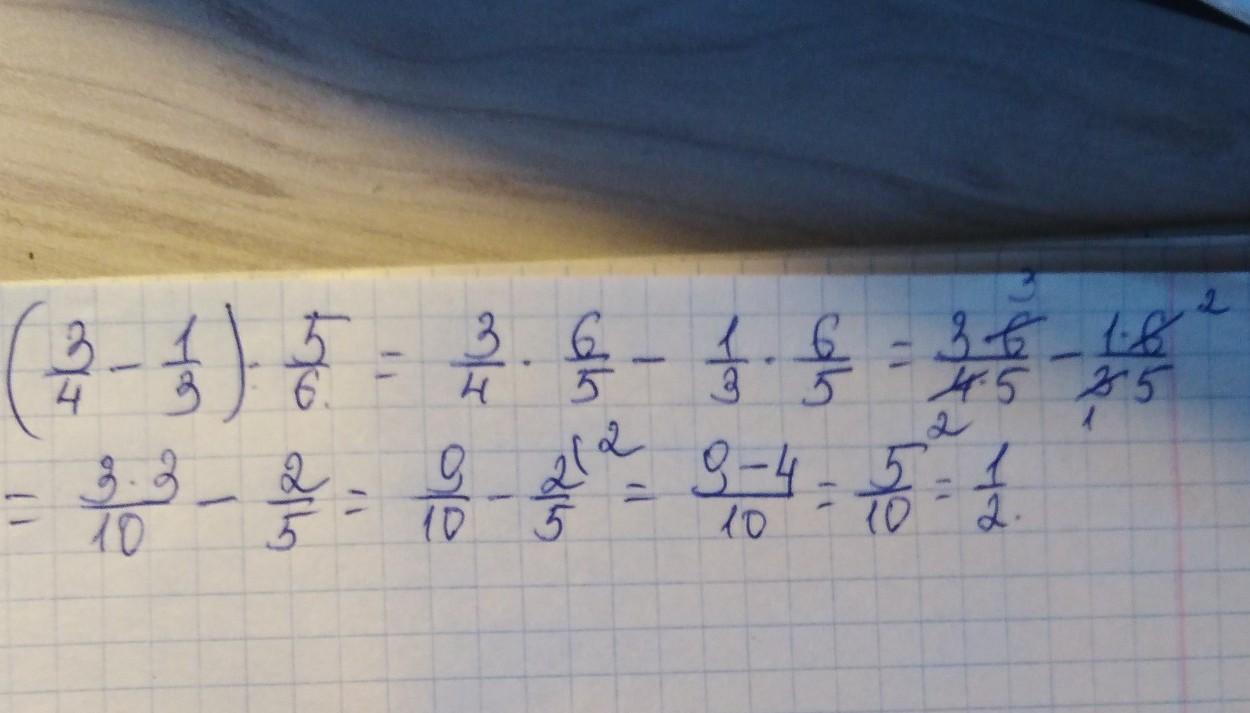 (3/4 - 1/3) : 5/6 = 3/4 · 6/5 - 1/3 · 6/5 = 3·6 3/4·5 2 - 1·6 2/3·5 1
= 3·3/10 - 2/5 = 9/10 - 2/5 (2 = 9-4/10 = 5/10 = 1/2.